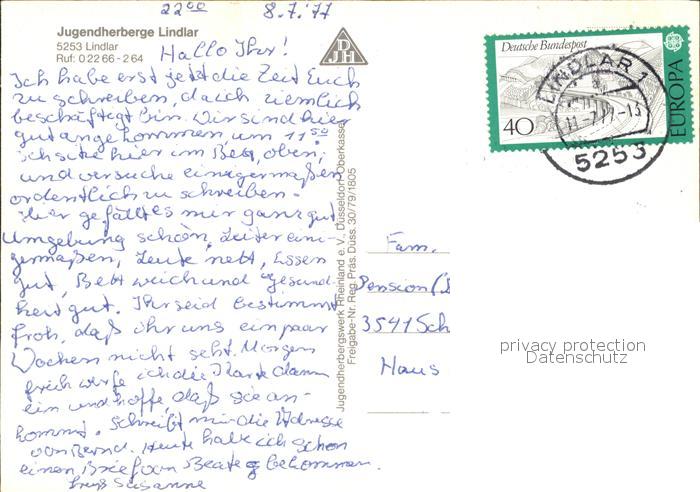 22⁰⁰ 8.7.77
Jugendherberge Lindlar
5253 Lindlar
Ruf: 0 22 66 - 2 64
DJH
Hallo Ihr!
Ich habe erst jetzt die Zeit Euch
zu schreiben, da ich ziemlich
beschäftigt bin. Wir sind hier
gut angekommen, um 11⁵⁰
Ich sitze hier im Bett, oben,
und versuche einigermaßen
ordentlich zu schreiben.
Hier gefällt es mir ganz gut
Umgebung schön, Leiter eini-
germaßen, Leute nett, Essen
gut, Bett weich und Gesund-
heit gut. Ihr seid bestimmt
froh, daß ihr uns ein paar
Wochen nicht seht. Morgen
früh werfe ich die Karte dann
ein und hoffe, daß sie an-
kommt. Schreibt mir die Adresse
von Bernd. Heute habe ich schon
einen Brief von Beate bekommen.
Gruß Susanne
Jugendherbergswerk Rheinland e. V., Düsseldorf-Oberkassel
Freigabe-Nr. Reg. Präs. Düss. 30/79/1805
Deutsche Bundespost
40
EUROPA
LINDLAR 1
11.-7.77-13
5253
Fam.
Pension
3541 Sch
Haus
privacy protection
Datenschutz